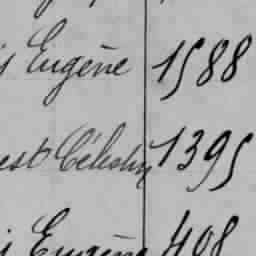 Eugène 1588
est Célestin 1395
Eugène 408